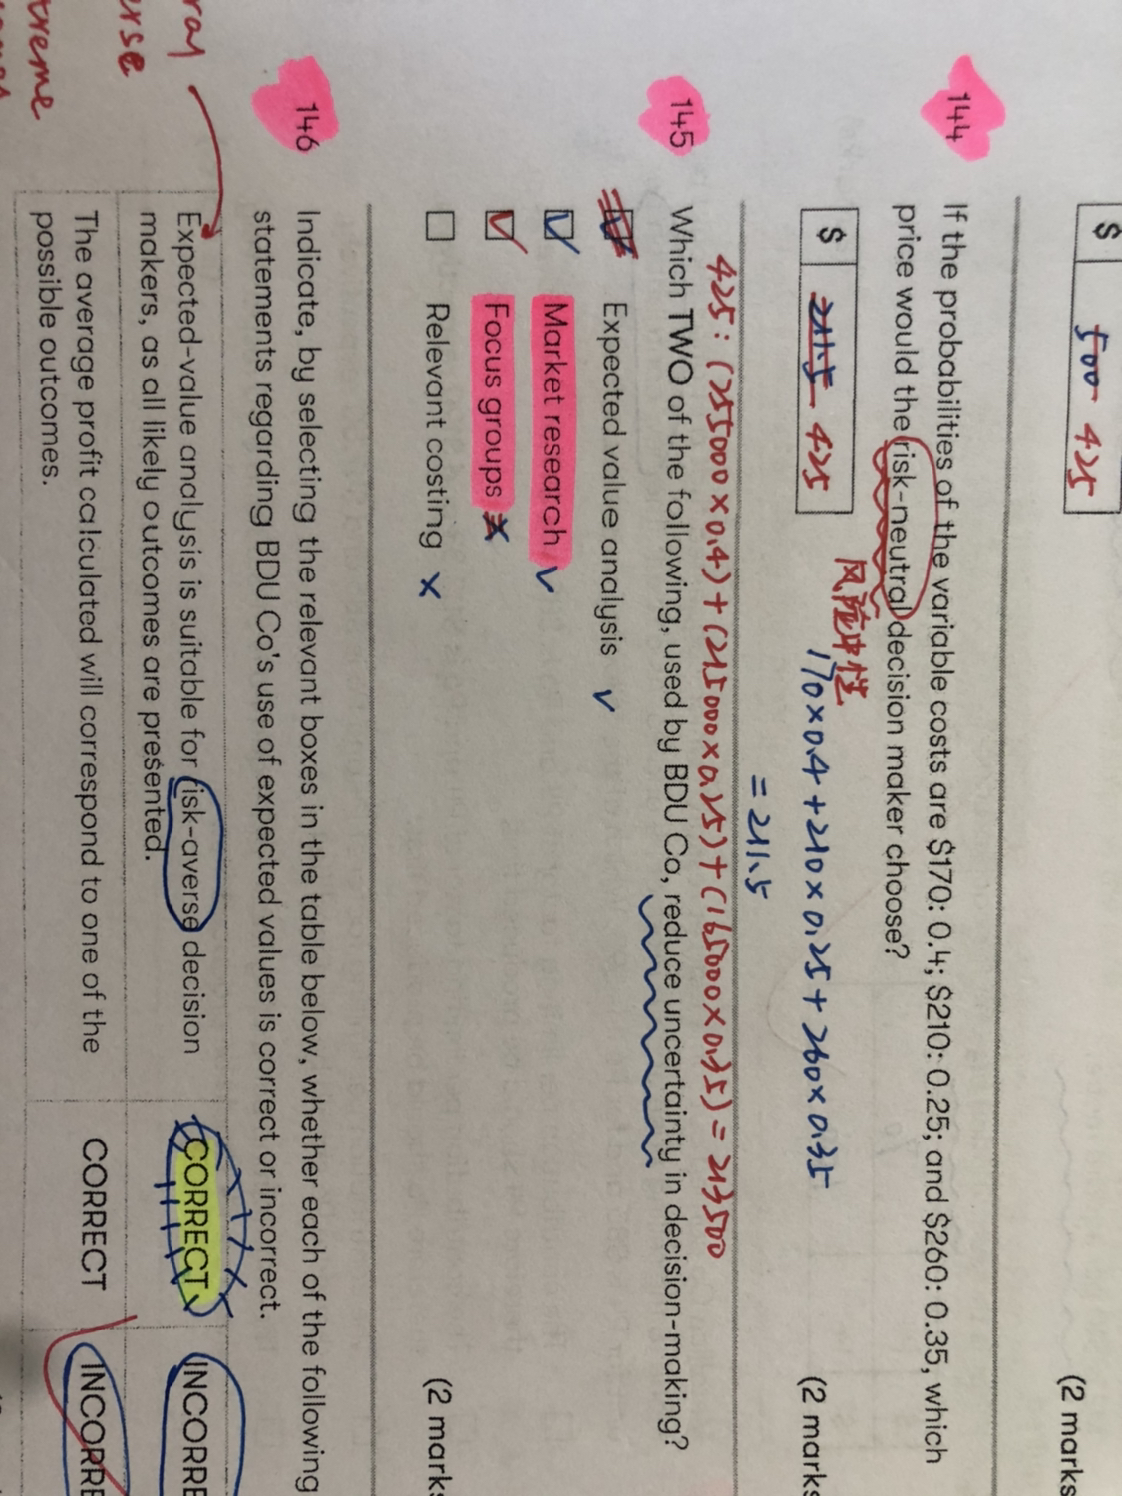 $ 500 425
(2 marks
144 If the probabilities of the variable costs are $170: 0.4; $210: 0.25; and $260: 0.35, which
price would the risk-neutral decision maker choose?
风险中性
$ 211.5 425
170×0.4+210×0.25+260×0.35
=211.5
(2 marks
425: (255000×0.4)+(215000×0.25)+(165000×0.35)=213500
145 Which TWO of the following, used by BDU Co, reduce uncertainty in decision-making?
Expected value analysis
Market research
Focus groups
Relevant costing
(2 marks
146 Indicate, by selecting the relevant boxes in the table below, whether each of the following
statements regarding BDU Co's use of expected values is correct or incorrect.
Expected-value analysis is suitable for risk-averse decision
makers, as all likely outcomes are presented.
CORRECT INCORRE
The average profit calculated will correspond to one of the
possible outcomes.
CORRECT INCORRE